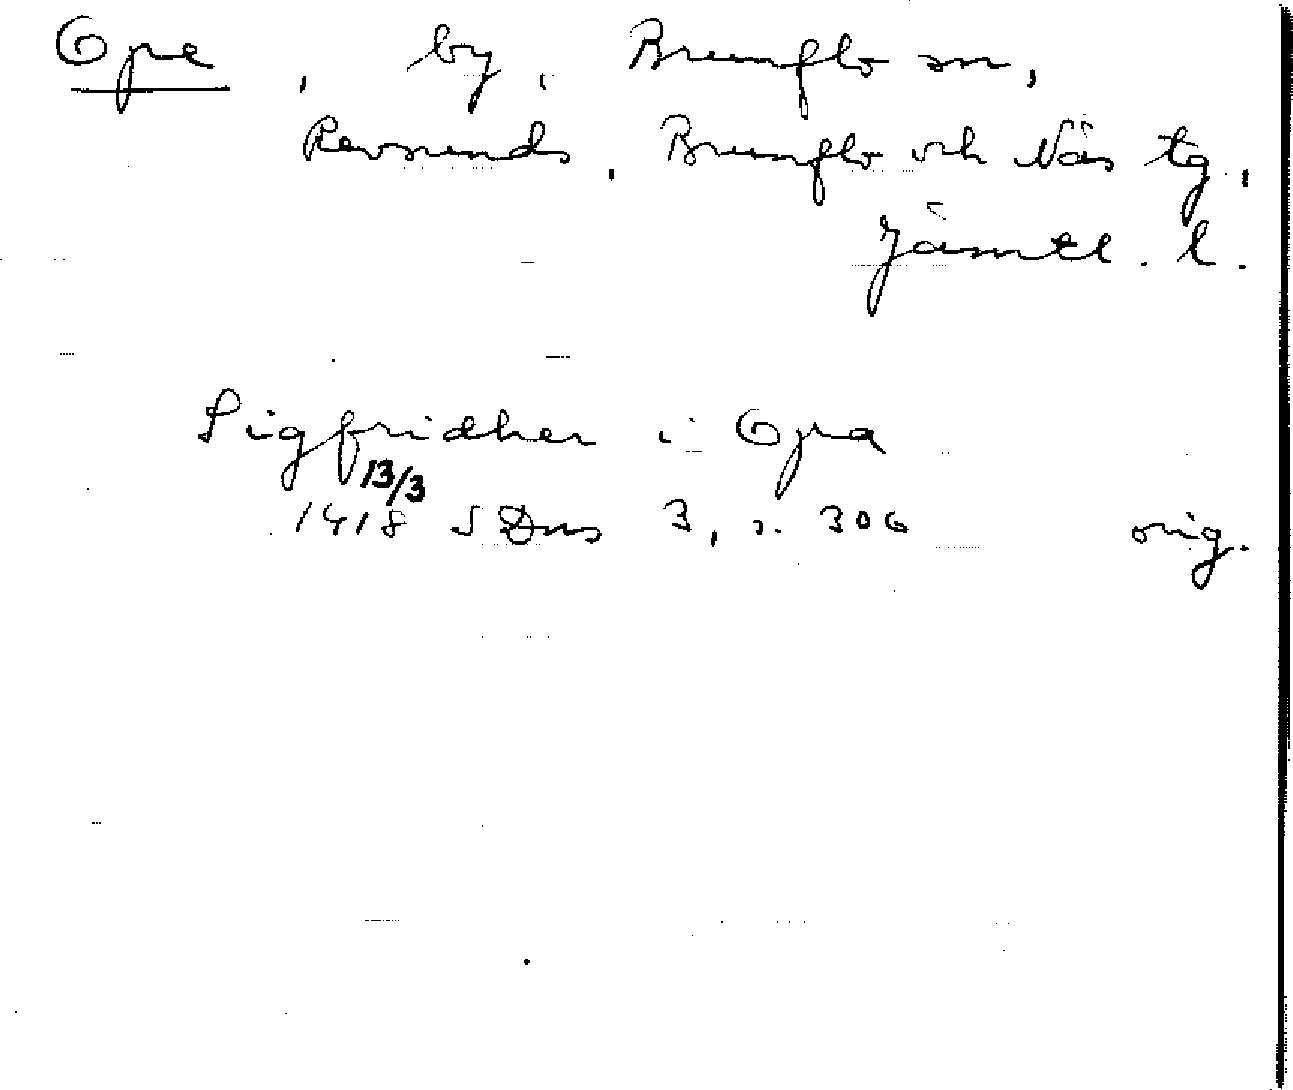 Ope, by, Brunflo sn,
Revsunds, Brunflo och Näs tg,
Jämtl. l.
Sigfridher i Opa
13/3
1418 SDns 3, s. 306 orig.